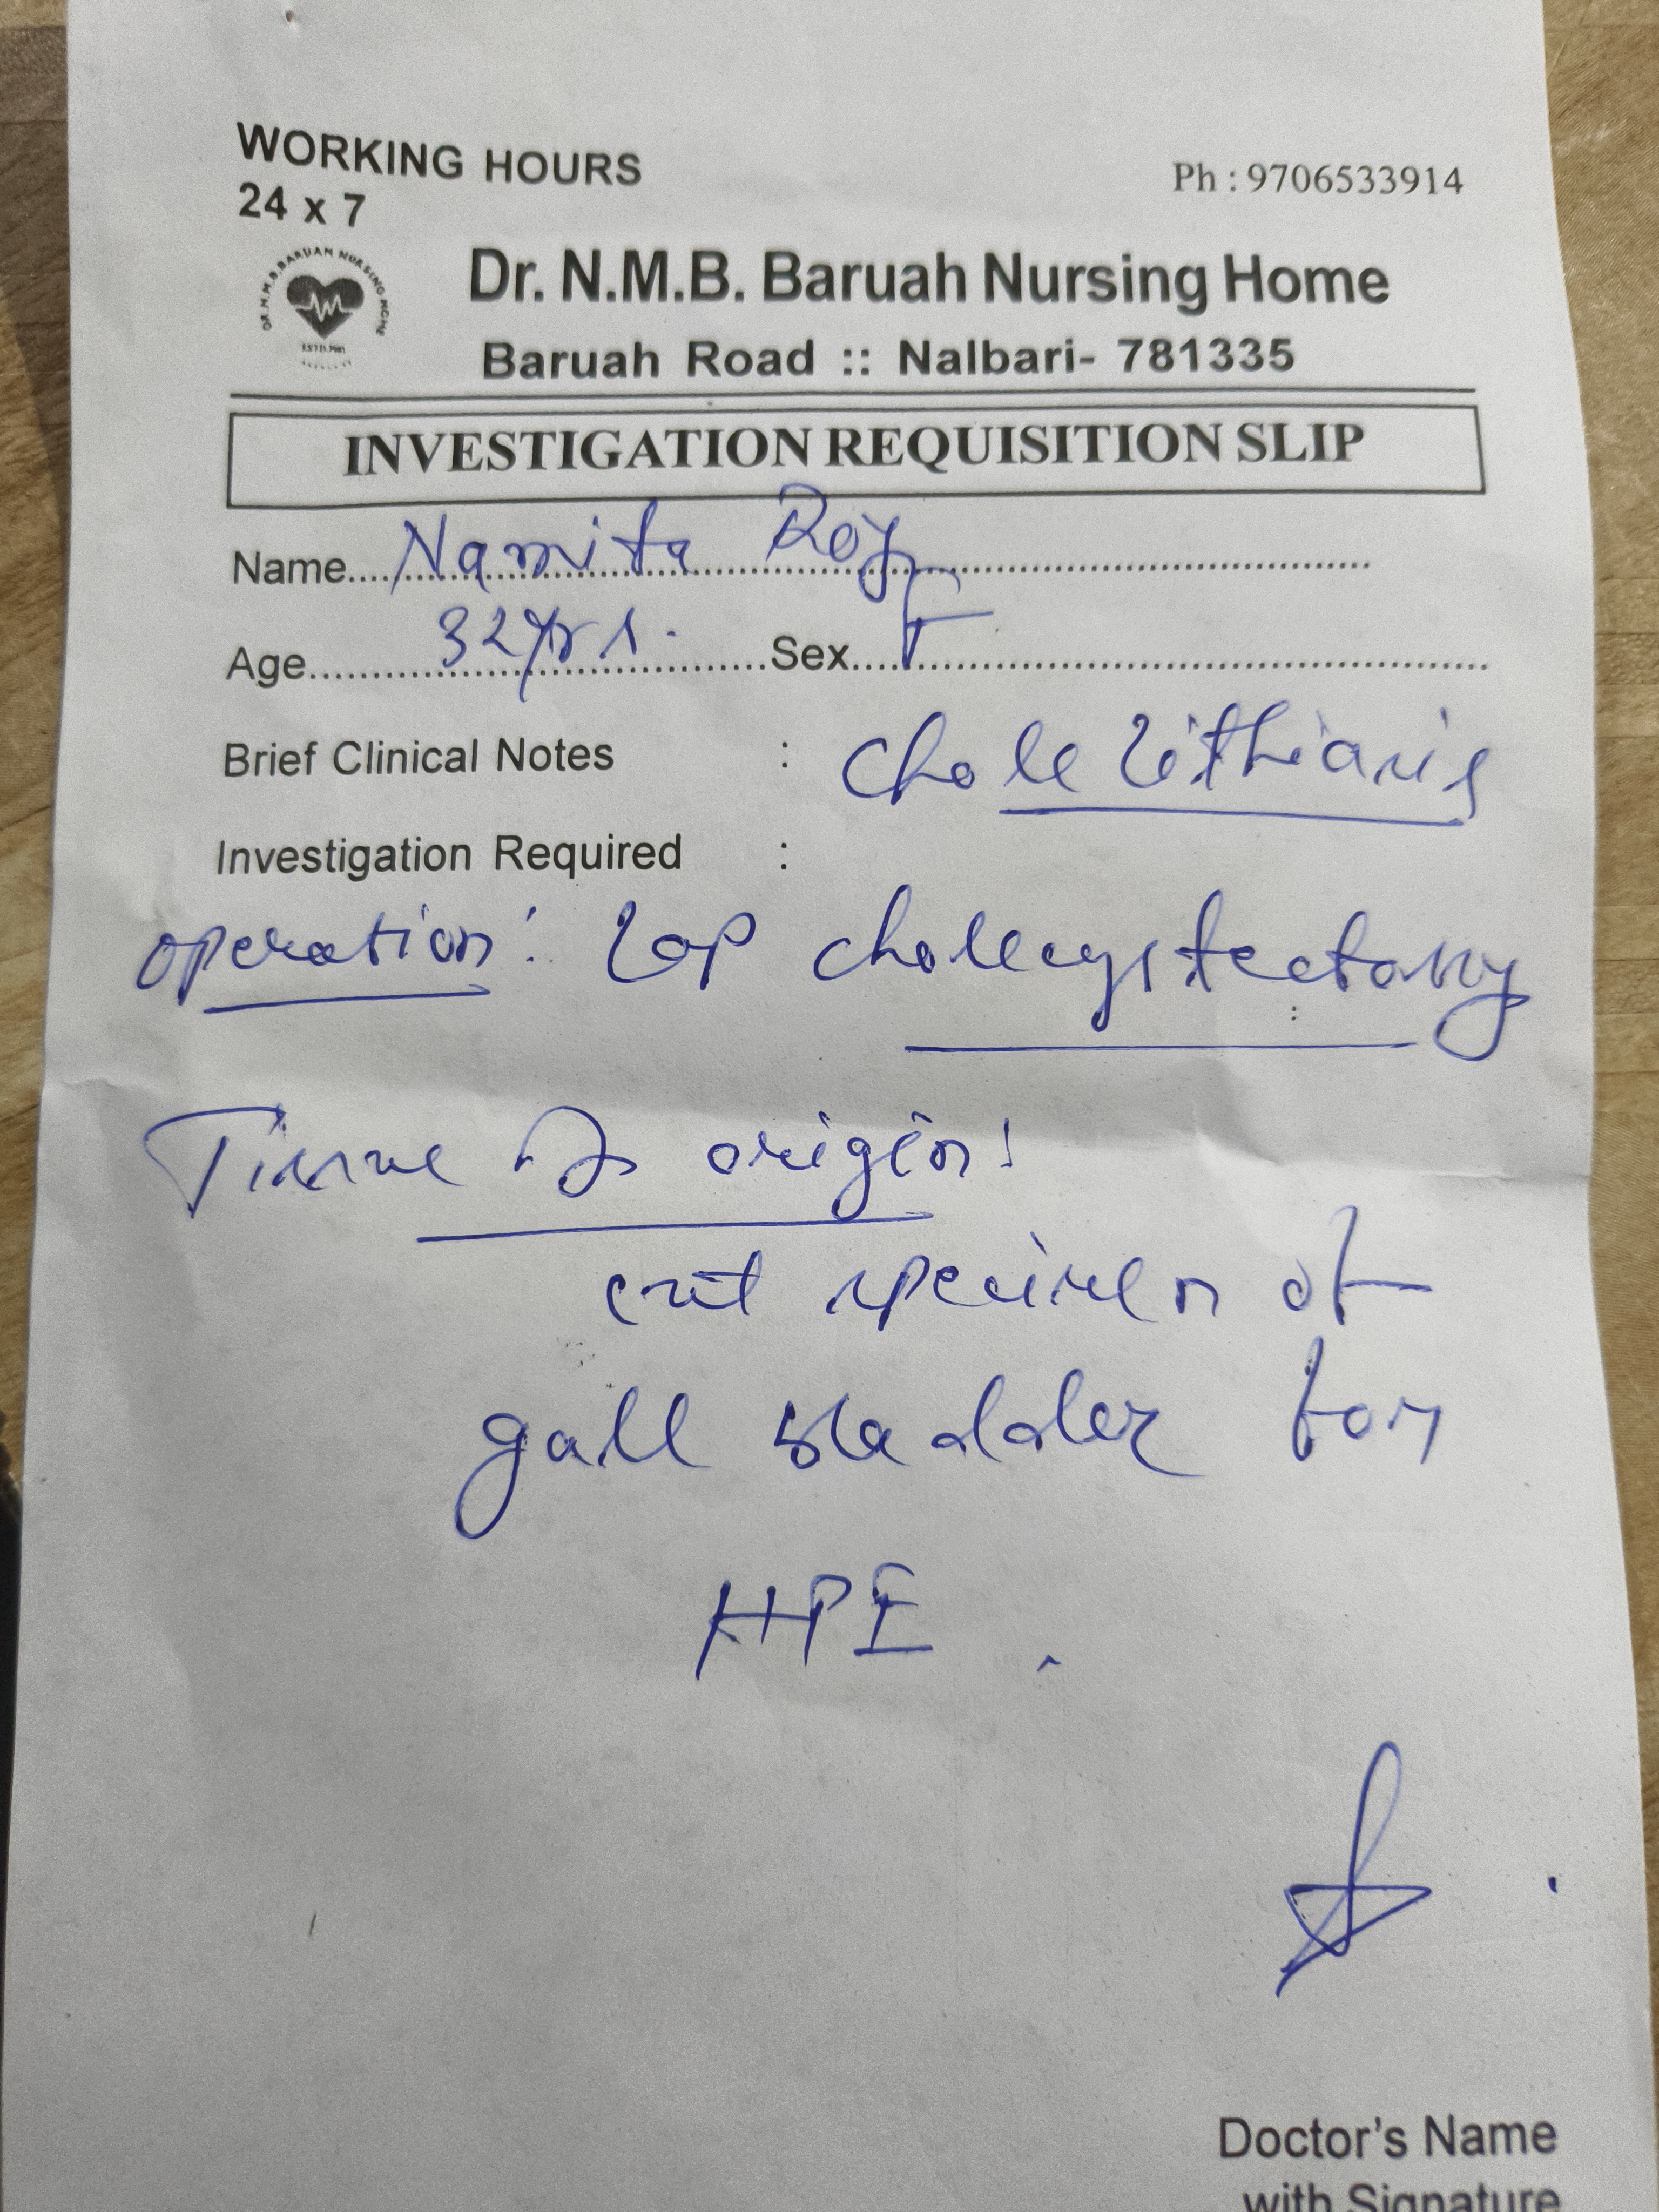 WORKING HOURS
24 x 7
Ph : 9706533914
Dr. N.M.B. Baruah Nursing Home
Baruah Road :: Nalbari- 781335
INVESTIGATION REQUISITION SLIP
Name.... Namita Roy
Age.... 32yrs. Sex.... F
Brief Clinical Notes : Cholelithiasis
Investigation Required :
operation: Lap cholecystectomy
Tissue of origin:
cut specimen of
gall bladder for
HPE.
Doctor's Name
with Signature